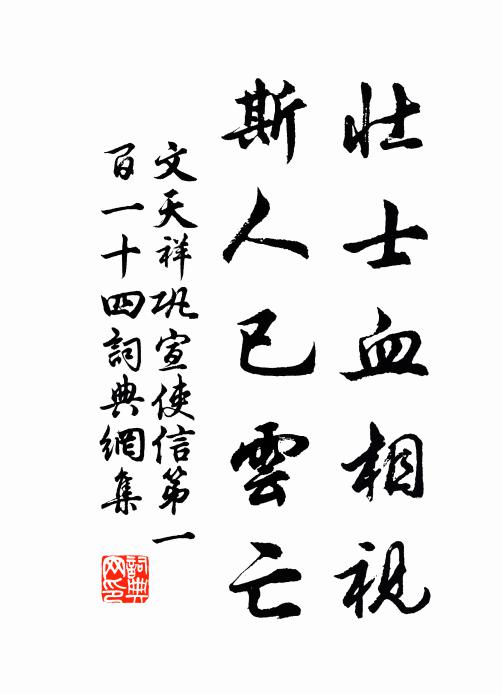 壮士血相視
斯人已雲亡
文天祥巩宣使信第一
百一十四詞典網集
詞典
网印